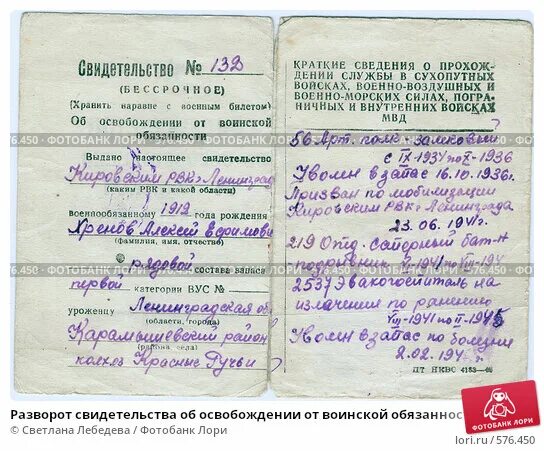 Свидетельство № 132
(БЕССРОЧНОЕ)
(Хранить наравне с военным билетом)
Об освобождении от воинской
обязанности
Выдано настоящее свидетельство
Кировским РВК г Ленинграда
(каким РВК и какой области)
военнообязанному 1912 года рождения
Хренов Алексей Ефимович
(фамилия, имя, отчество)
рядовой состава запаса
первой категории ВУС №
уроженцу Ленинградская об
(области, города)
Карамышевский район
(района села)
колхоз Красные Ручьи
КРАТКИЕ СВЕДЕНИЯ О ПРОХОЖ-
ДЕНИИ СЛУЖБЫ В СУХОПУТНЫХ
ВОЙСКАХ, ВОЕННО-ВОЗДУШНЫХ И
ВОЕННО-МОРСКИХ СИЛАХ, ПОГРА-
НИЧНЫХ И ВНУТРЕННИХ ВОЙСКАХ
МВД
56 Арт. полк - замковый
с IX-1934 по X-1936
Уволен в запас 16.10.1936г.
Призван по мобилизации
Кировским РВК г Ленинграда
23.06.1941г
219 Отд. саперный бат-н
подрывник 1941 по VIII-1941
2537 Эвакогоспиталь на
излечении по ранению
VIII-1941 по II-1945
Уволен в запас по болезни
2.02.194 г.
ПТ НКВС 4183
76.450 - ФОТОБАНК ЛОРИ - 576.450 - ФОТОБАНК ЛОРИ - 576.450 - ФОТОБАНК ЛОРИ
ФОТОБАНК ЛОРИ
Разворот свидетельства об освобождении от воинской обязаннос
© Светлана Лебедева / Фотобанк Лори
lori.ru / 576.450